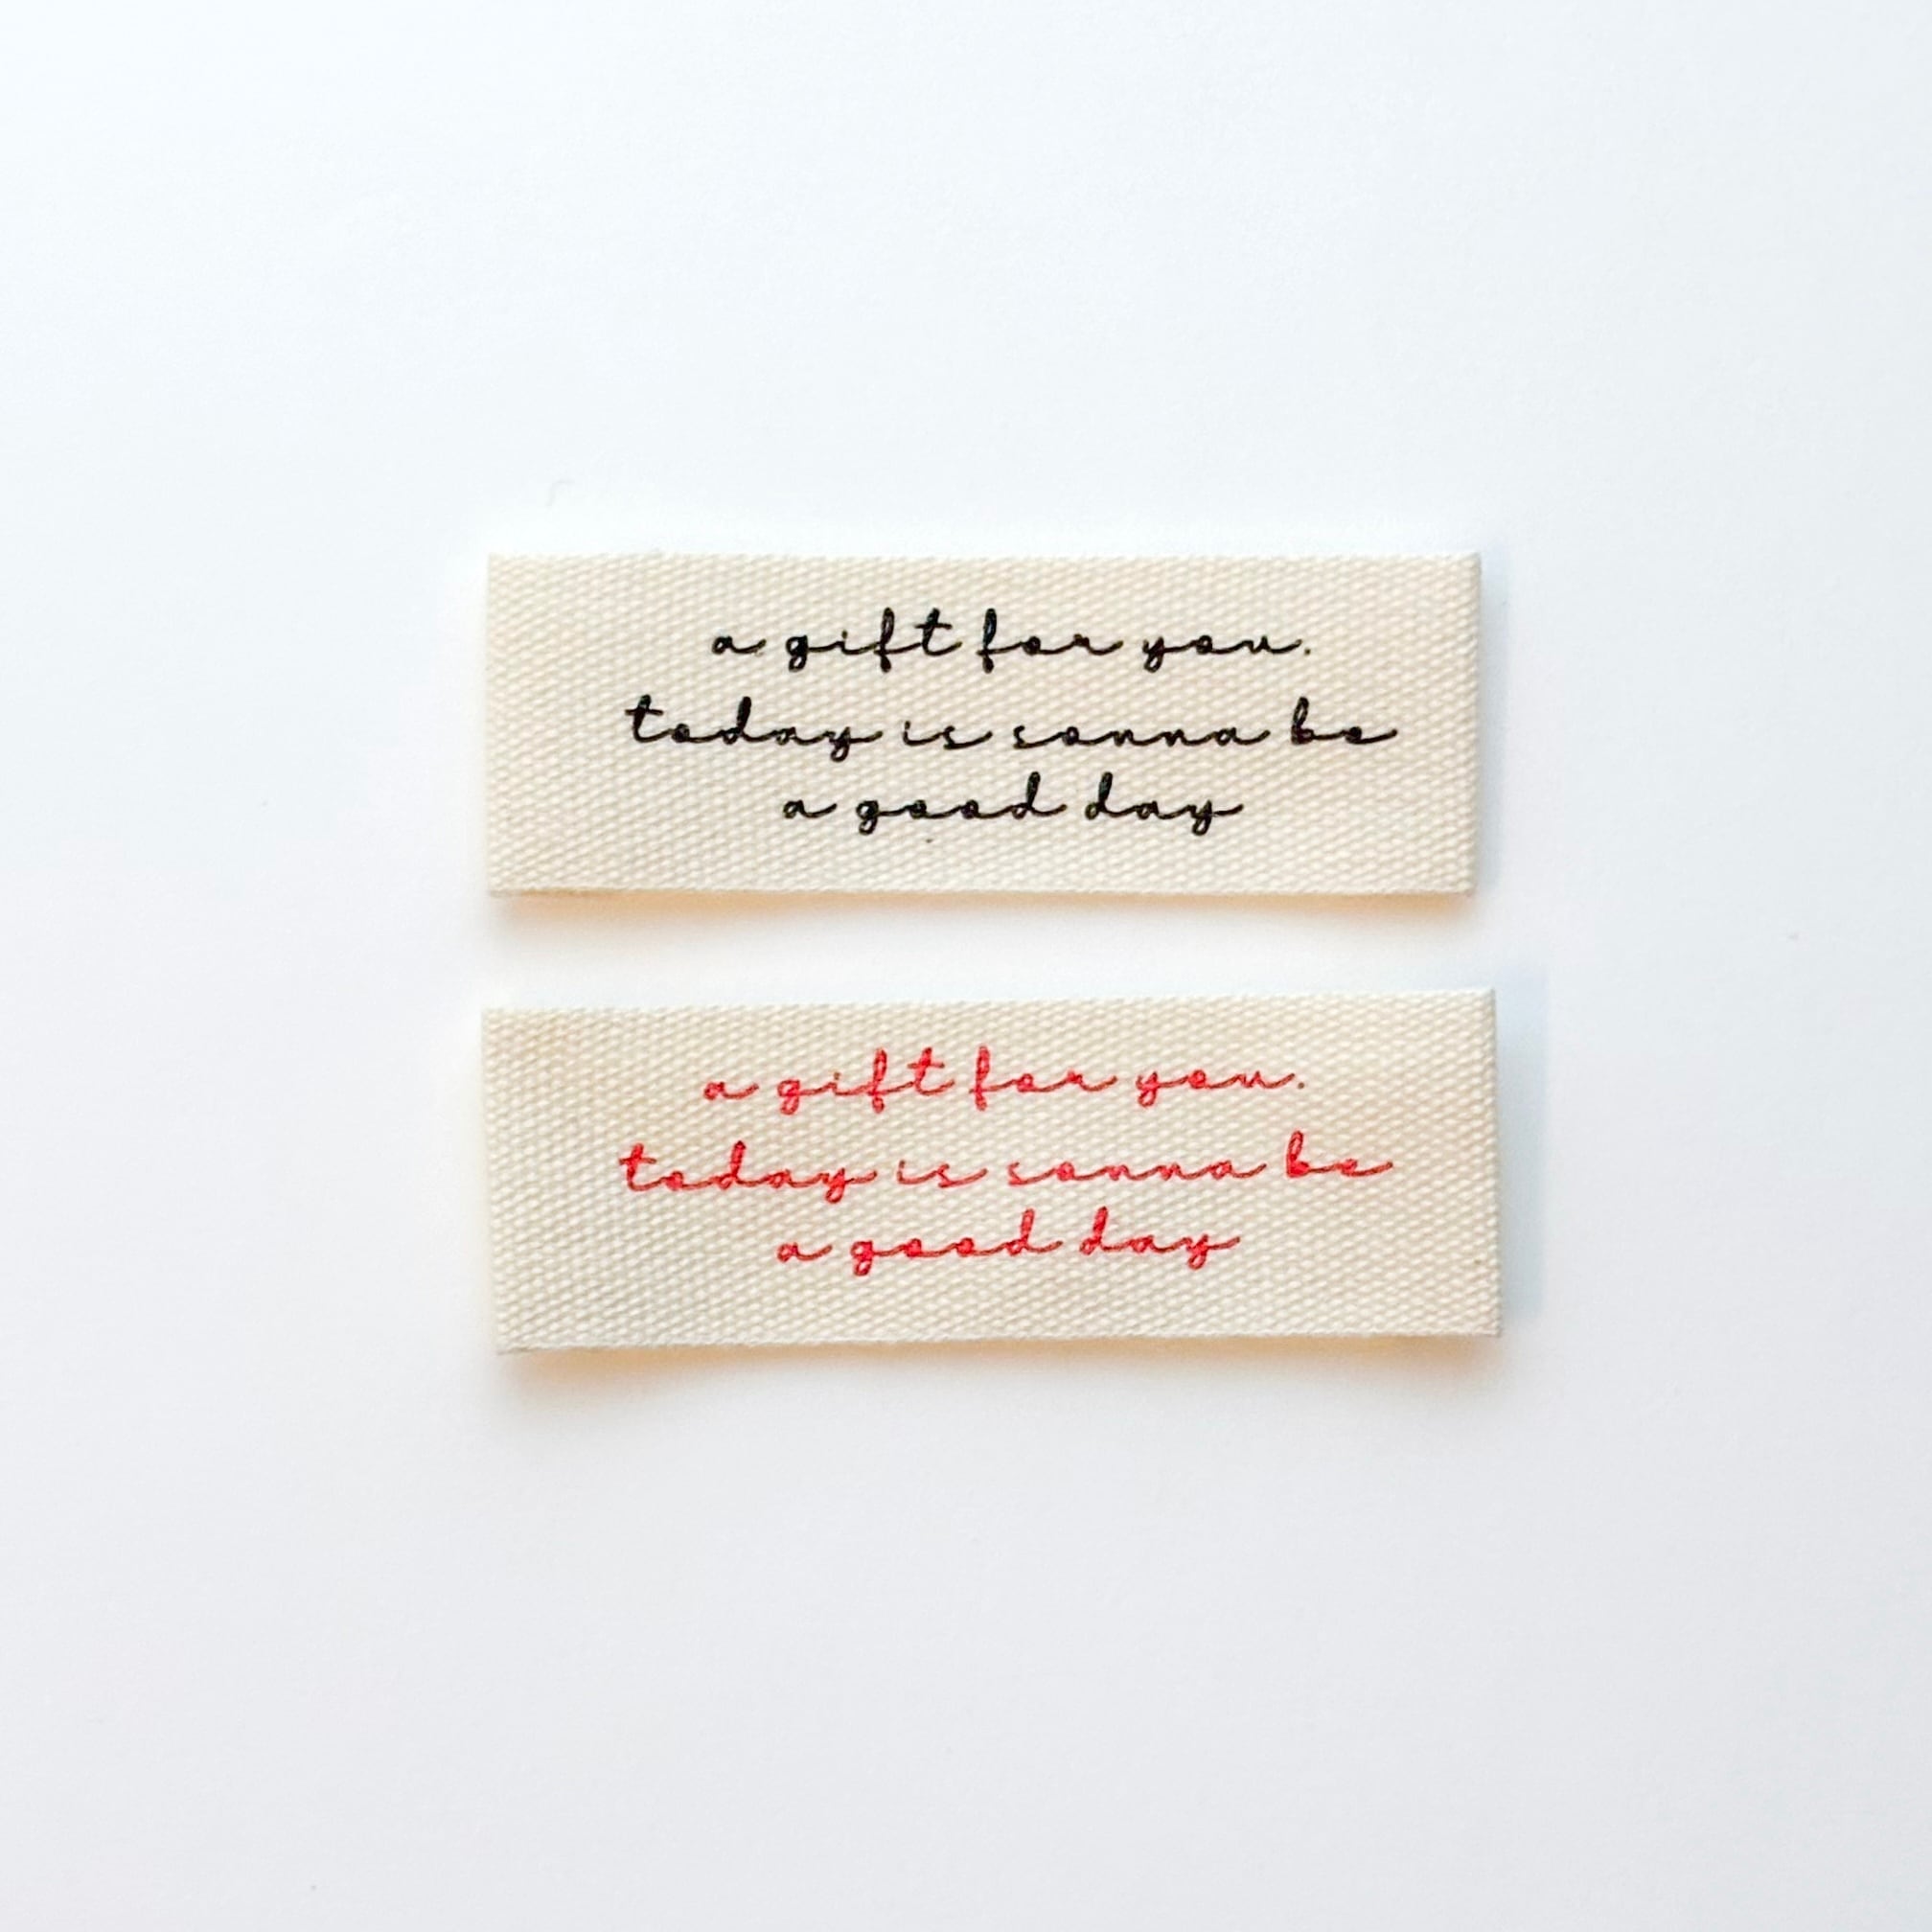 a gift for you.
today is sonna be
a good day
a gift for you.
today is sonna be
a good day